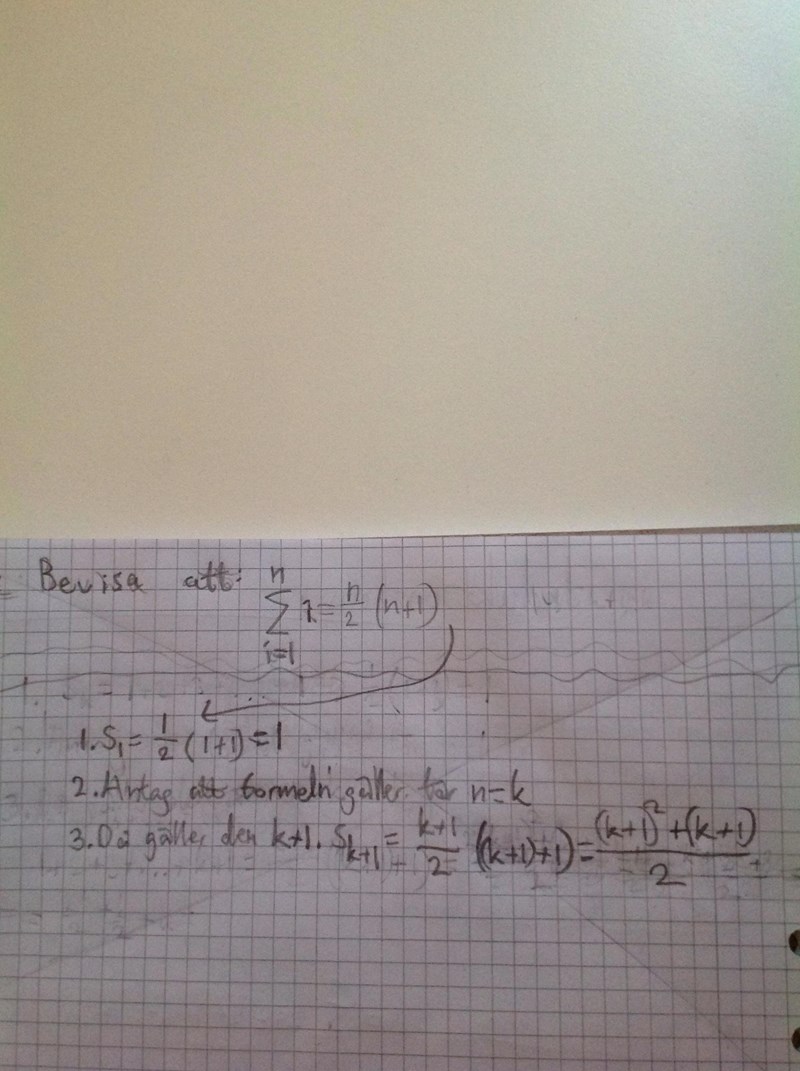 Bevisa att: n∑i=1 i = n/2 (n+1)
1. S₁ = 1/2 (1+1) = 1
2. Antag att formeln gäller för n=k
3. Då gäller den k+1. Sₖ₊₁ = k+1/2 ((k+1)+1) = (k+1)²+(k+1)/2